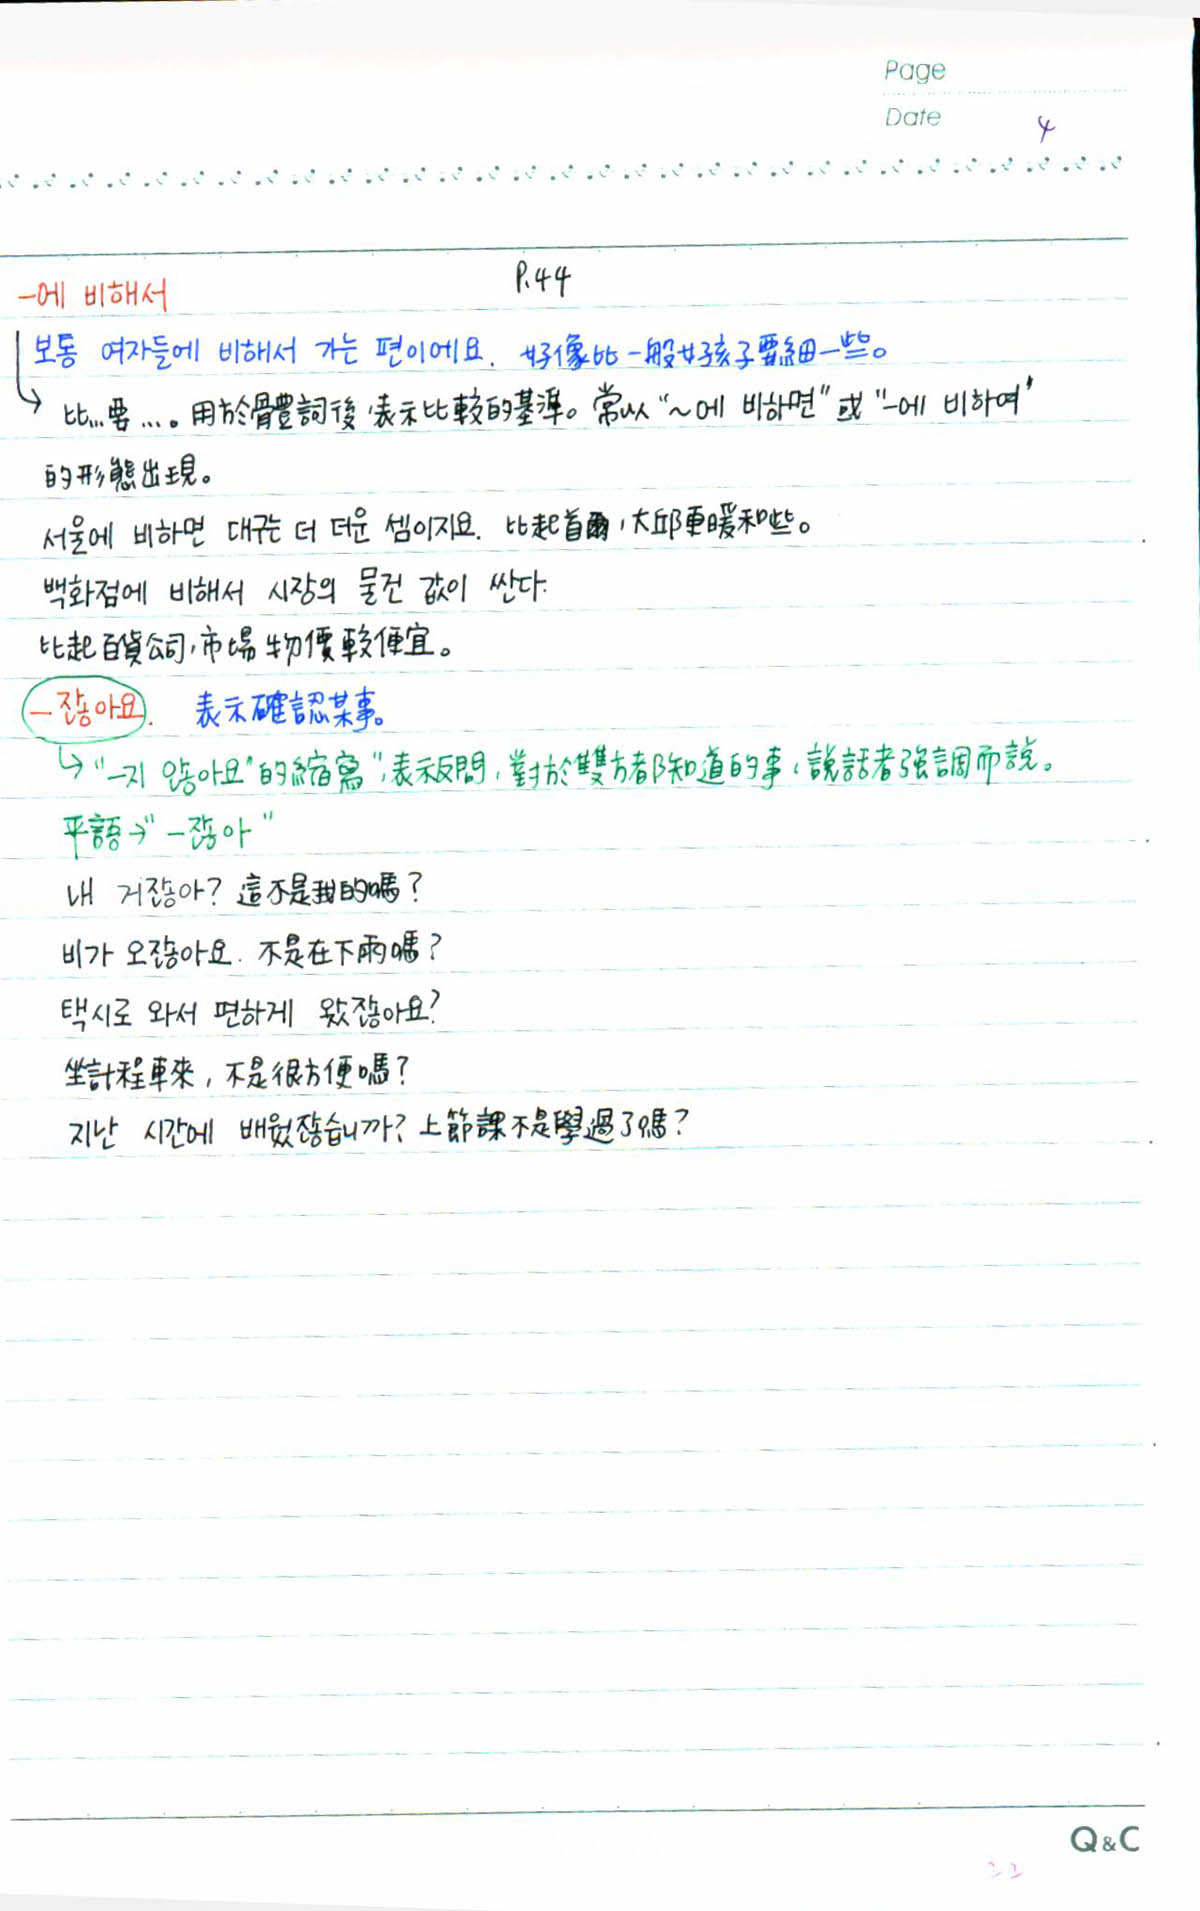 Page
Date 4
P.44
-에 비해서
보통 여자들에 비해서 가는 편이에요. 好像比一般女孩子要細一些。
比...要...。用於體詞後,表示比較的基準。常以"~에 비하면"或"-에 비하여"
的形態出現。
서울에 비하면 대구는 더 더운 셈이지요. 比起首爾,大邱更暖和些。
백화점에 비해서 시장의 물건 값이 싼다.
比起百貨公司,市場物價較便宜。
-잖아요. 表示確認某事。
"-지 않아요"的縮寫",表示反問,對於雙方都知道的事,說話者強調而說。
平語→"-잖아"
내 거잖아? 這不是我的嗎?
비가 오잖아요. 不是在下雨嗎?
택시로 와서 편하게 왔잖아요?
坐計程車來,不是很方便嗎?
지난 시간에 배웠잖습니까? 上節課不是學過了嗎?
Q&C